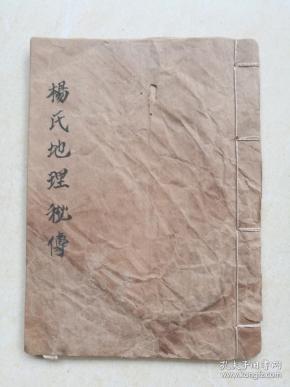 楊氏地理秘傳
孔夫子旧书网
www.kongfz.com